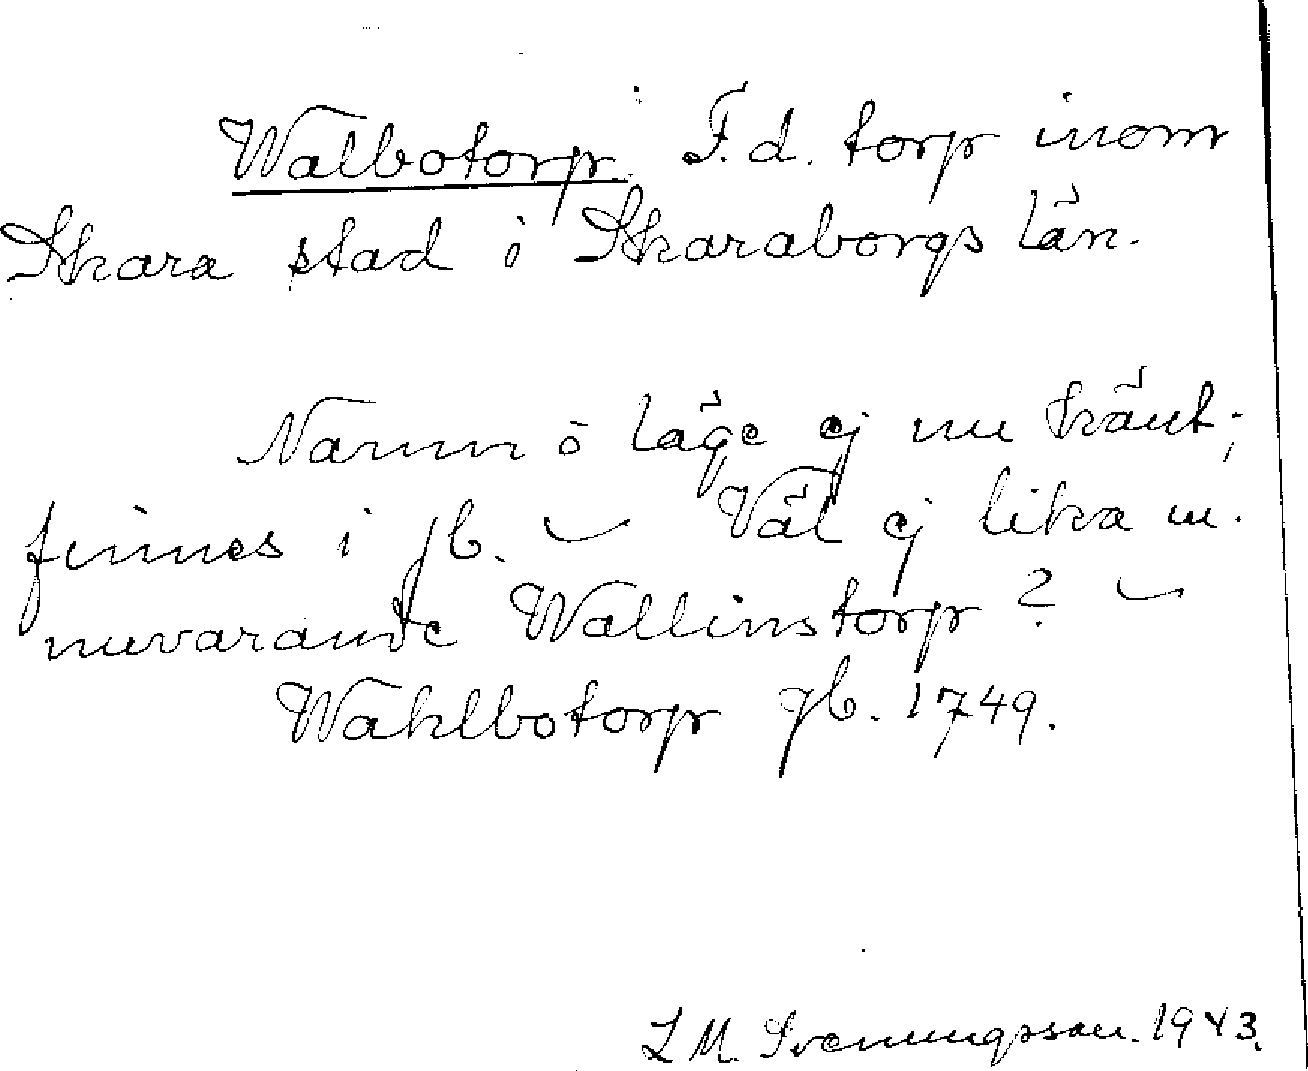 Walbotorp. F.d. torp inom
Skara stad i Skaraborgs län.
Namn o läge ej nu känt;
finnes i jb. – Väl ej lika m.
nuvarande Wallinstorp? –
Wahlbotorp gb. 1749.
L M. Svenungsson. 1943.